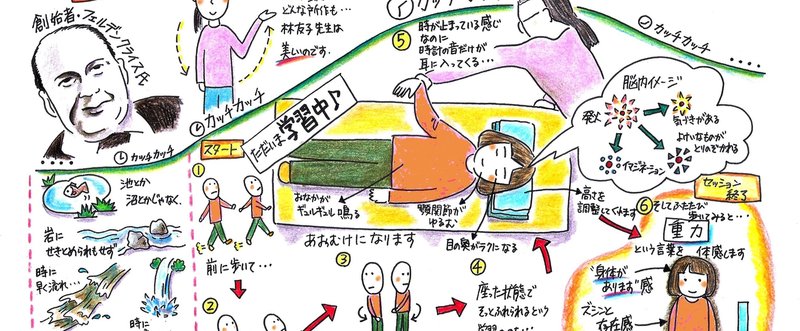 創始者・フェルデンクライス氏
どんな所作も…
林友子先生は
美しいのです。
カッチカッチ
カッチカッチ
⑤
時が止まっている感じ
なのに
時計の音だけが
耳に入ってくる…
カッチカッチ
脳内イメージ
発火
気づきがある
よけいなものが
とりのぞかれる
イマジネーション
ただいま学習中♪
スタート
①
おなかが
ギュルギュル鳴る
顎関節が
ゆるむ
目の奥がラクになる
高さを
調整してくれます
あおむけになります
池とか
沼とかじゃなく、
岩に
せきとめられもせず
時に
早く流れ…
時に
前に歩いて…
②
③
④
座った状態で
セッション
終了
⑥そしてふたたび
歩いてみると…
重力
という言葉を 体感します
"身体が
あります"感
ズシンと
存在感